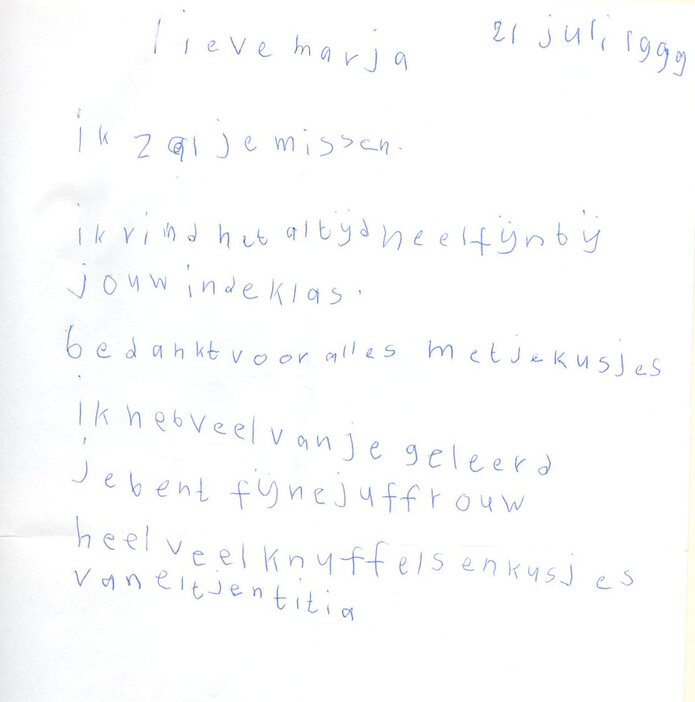 lieve marja 21 juli 1999
ik zal je missen.
ik vind het altijd heel fijn bij
jouw in de klas.
bedankt voor alles met je kusjes
ik heb veel van je geleerd
je bent fijne juffrouw
heel veel knuffels en kusjes
van eltjen titia